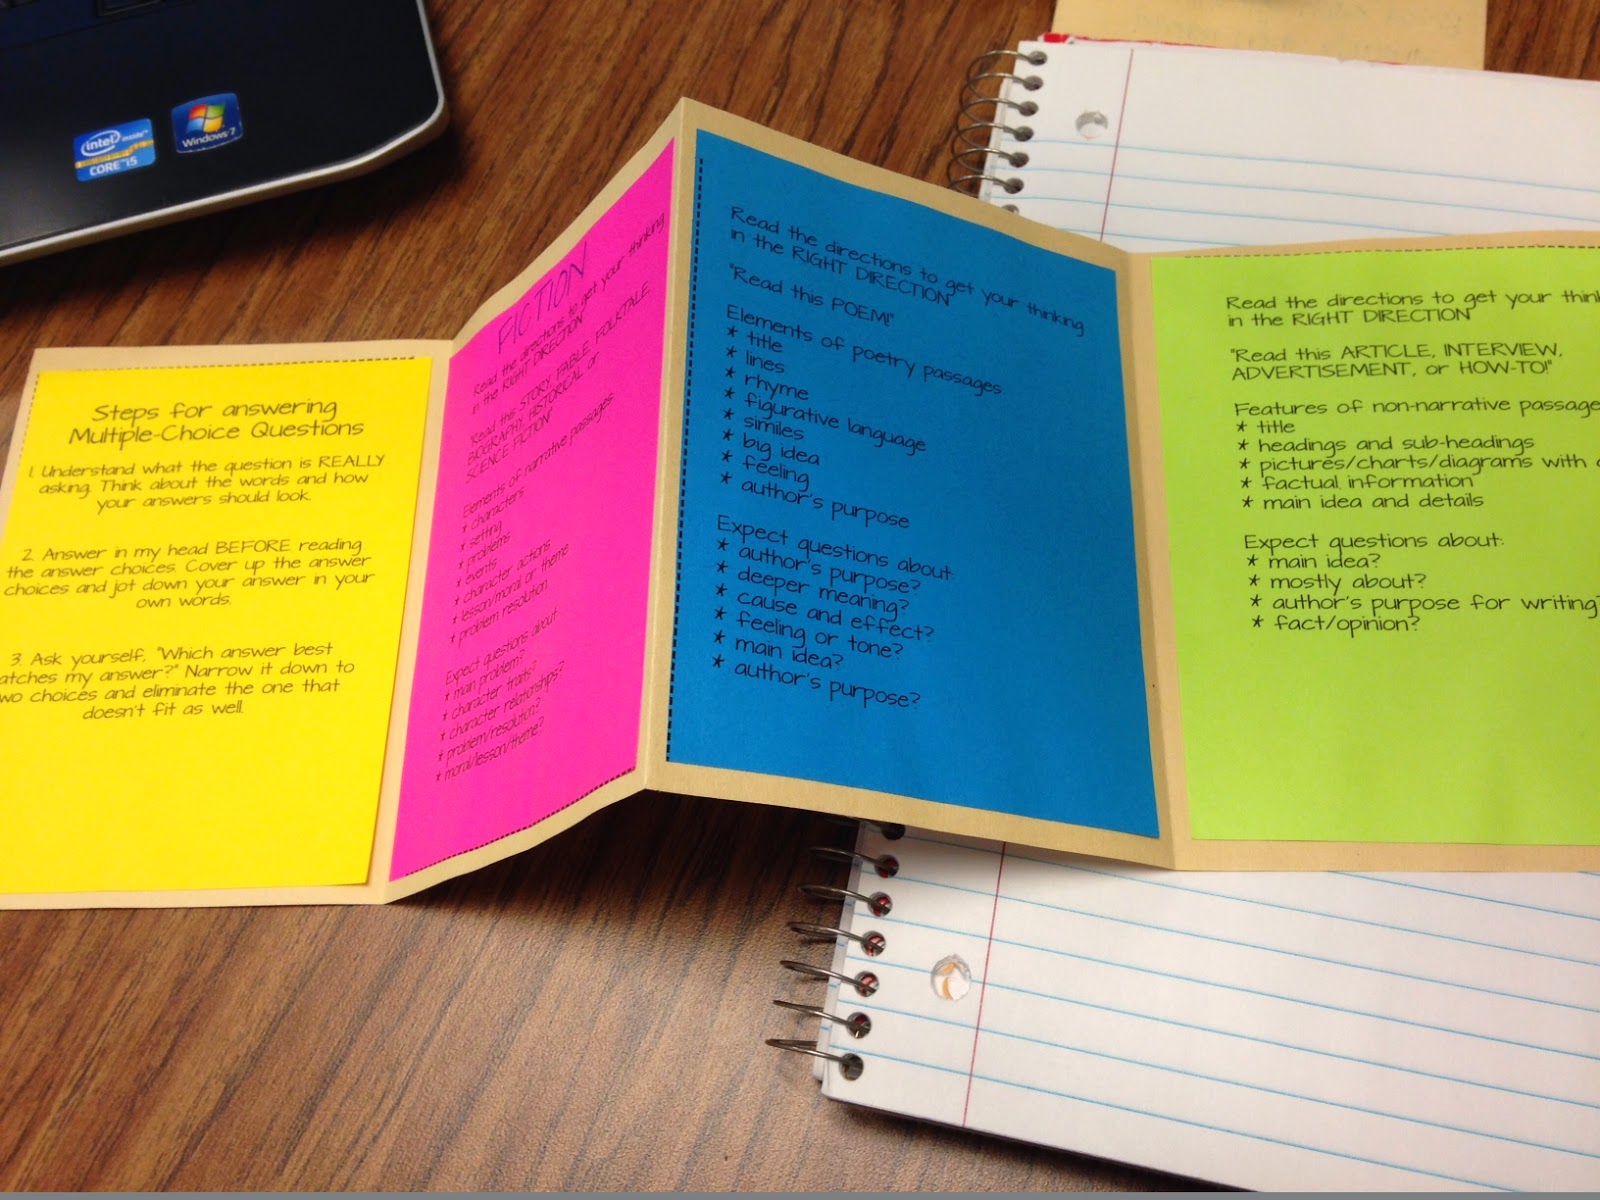 intel inside™
CORE™i5
Windows 7
Steps for answering
Multiple-Choice Questions
1. Understand what the question is REALLY
asking. Think about the words and how
your answers should look.
2. Answer in my head BEFORE reading
the answer choices. Cover up the answer
choices and jot down your answer in your
own words.
3. Ask yourself, "Which answer best
atches my answer?" Narrow it down to
wo choices and eliminate the one that
doesn't fit as well.
FICTION
Read the directions to get your thinking
in the RIGHT DIRECTION"
"Read this STORY, FABLE, FOLKTALE,
BIOGRAPHY, HISTORICAL or
SCIENCE FICTION"
Elements of narrative passages:
* characters
* setting
* problems
* events
* character actions
* lesson/moral or theme
* problem resolution
Expect questions about
* main problem?
* character traits?
* character relationships?
* problem/resolution?
* moral/lesson/theme?
Read the directions to get your thinking
in the RIGHT DIRECTION"
"Read this POEM!"
Elements of poetry passages
* title
* lines
* rhyme
* figurative language
* similes
* big idea
* feeling
* author's purpose
Expect questions about:
* author's purpose?
* deeper meaning?
* cause and effect?
* feeling or tone?
* main idea?
* author's purpose?
Read the directions to get your think
in the RIGHT DIRECTION"
"Read this ARTICLE, INTERVIEW,
ADVERTISEMENT, or HOW-TO!"
Features of non-narrative passage
* title
* headings and sub-headings
* pictures/charts/diagrams with
* factual information
* main idea and details
Expect questions about:
* main idea?
* mostly about?
* author's purpose for writing?
* fact/opinion?